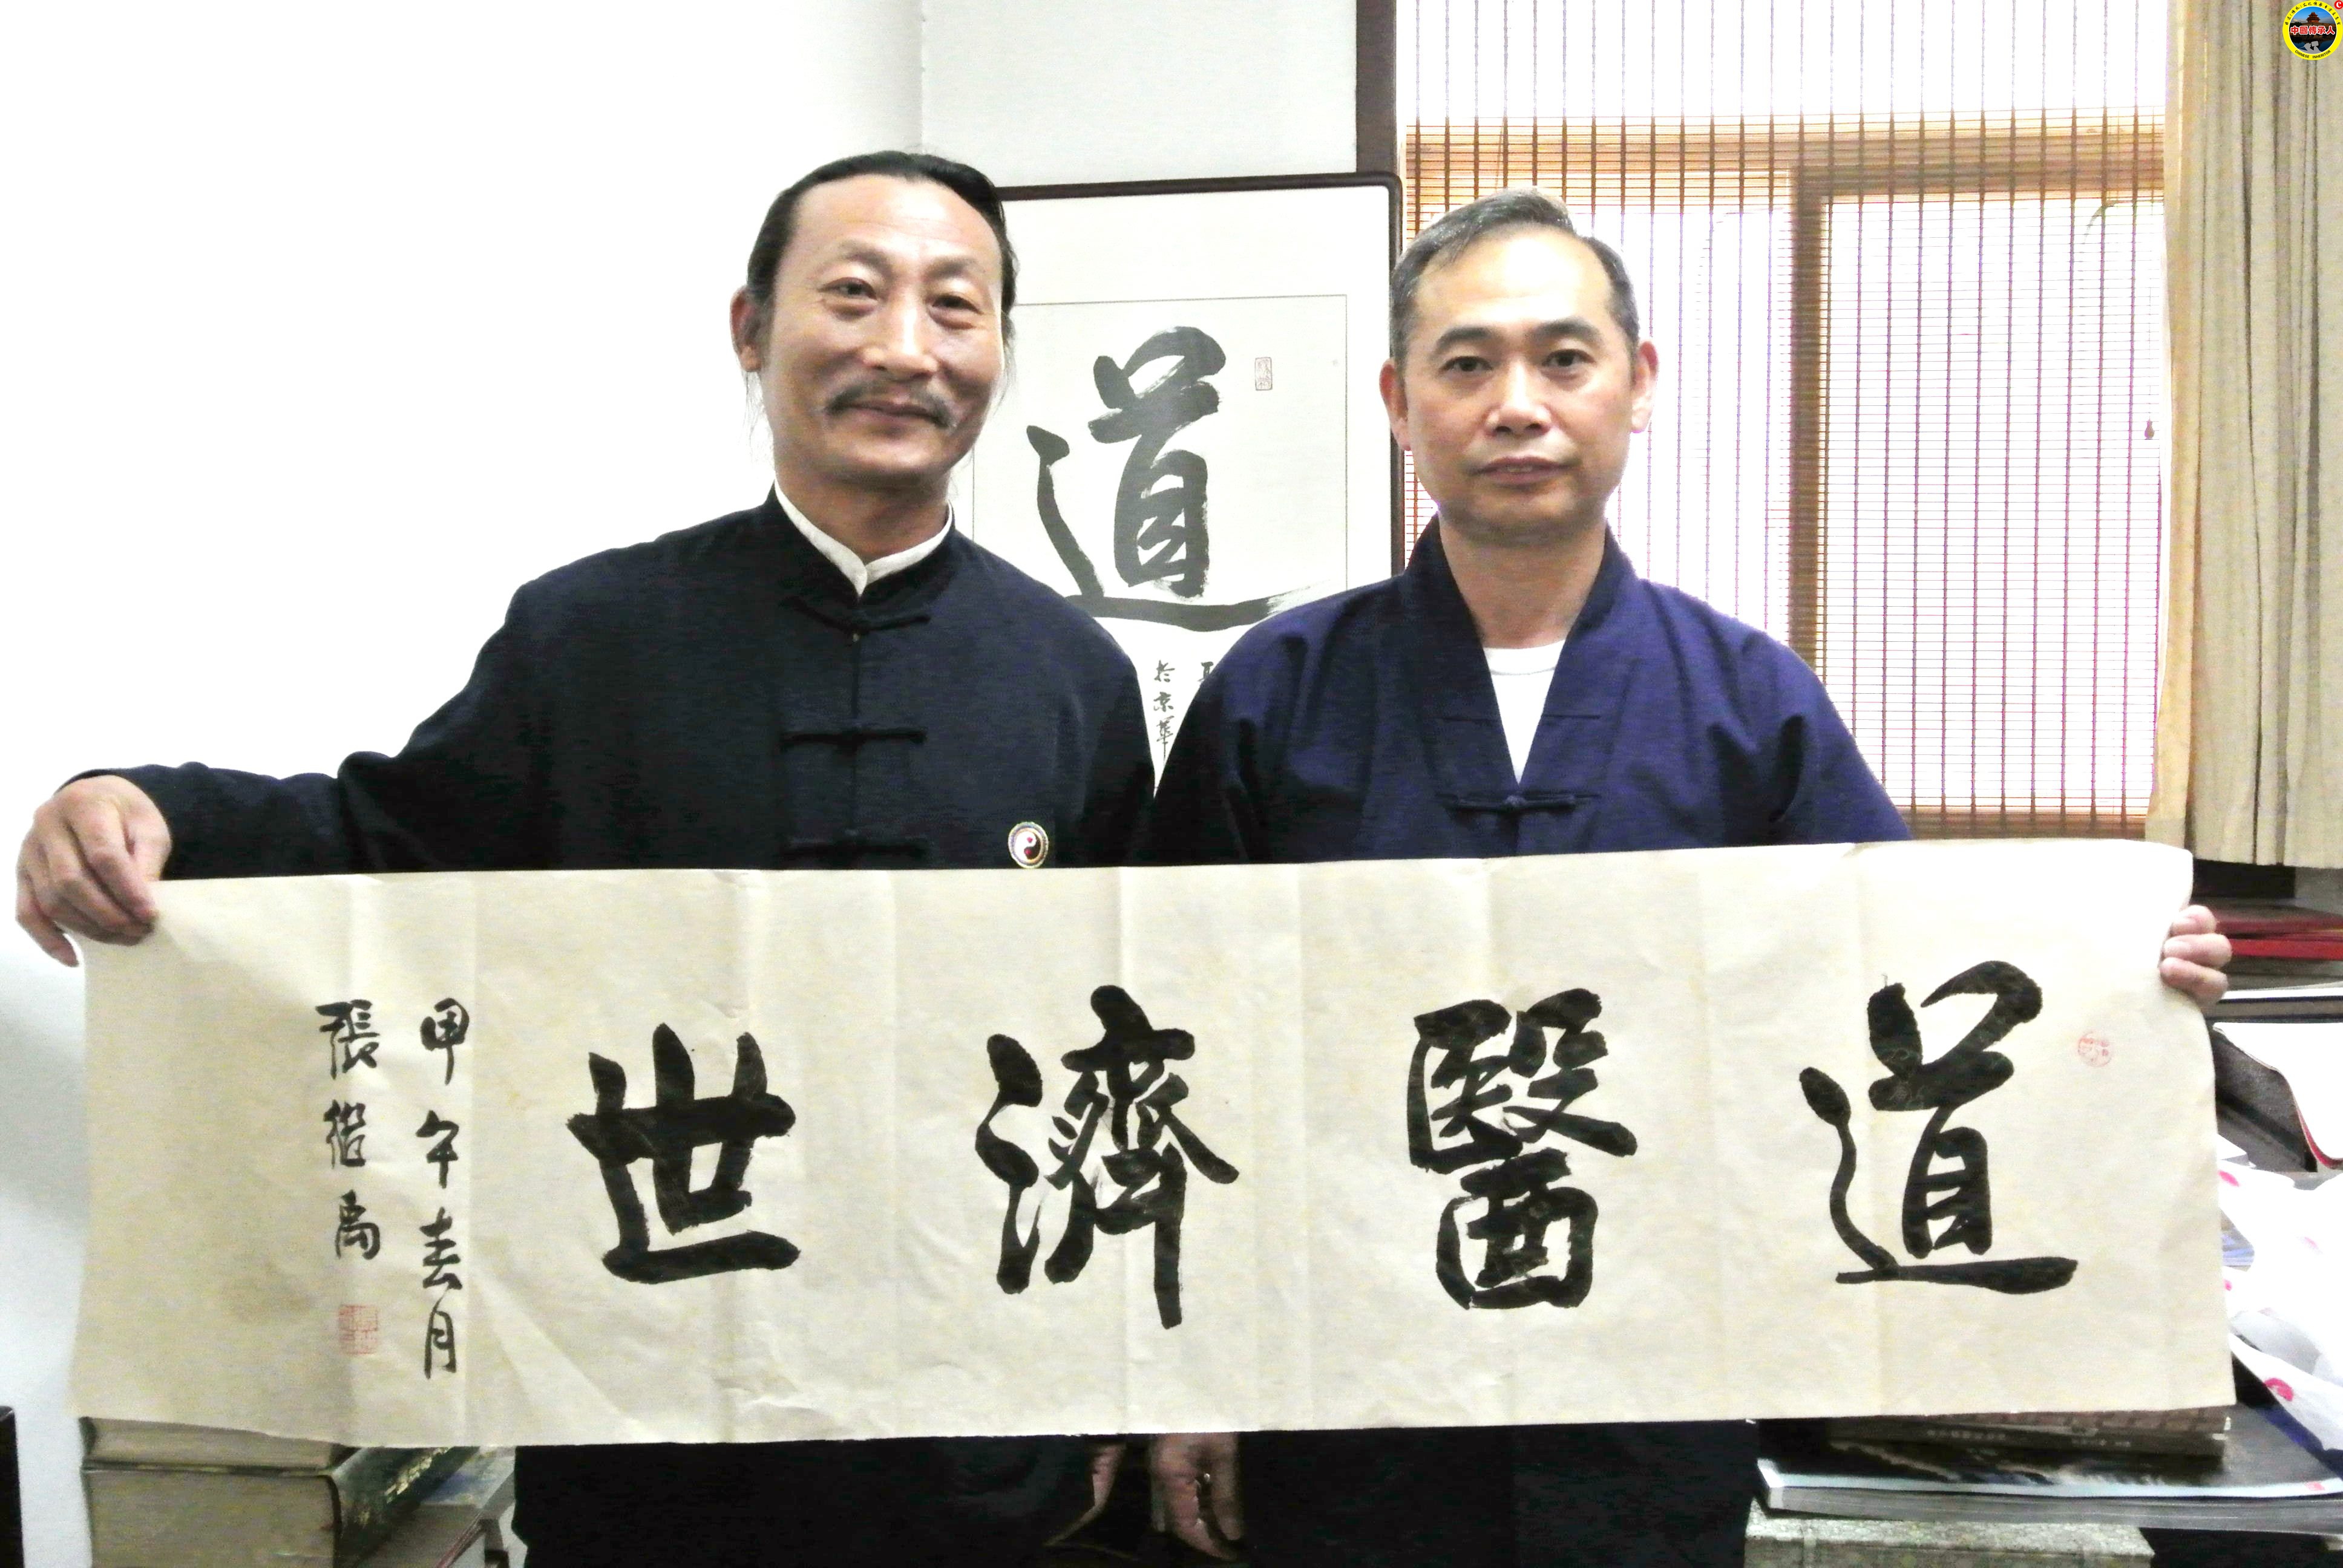 道醫濟世
甲午春月
張繼禹
道
於京華
中国传承人